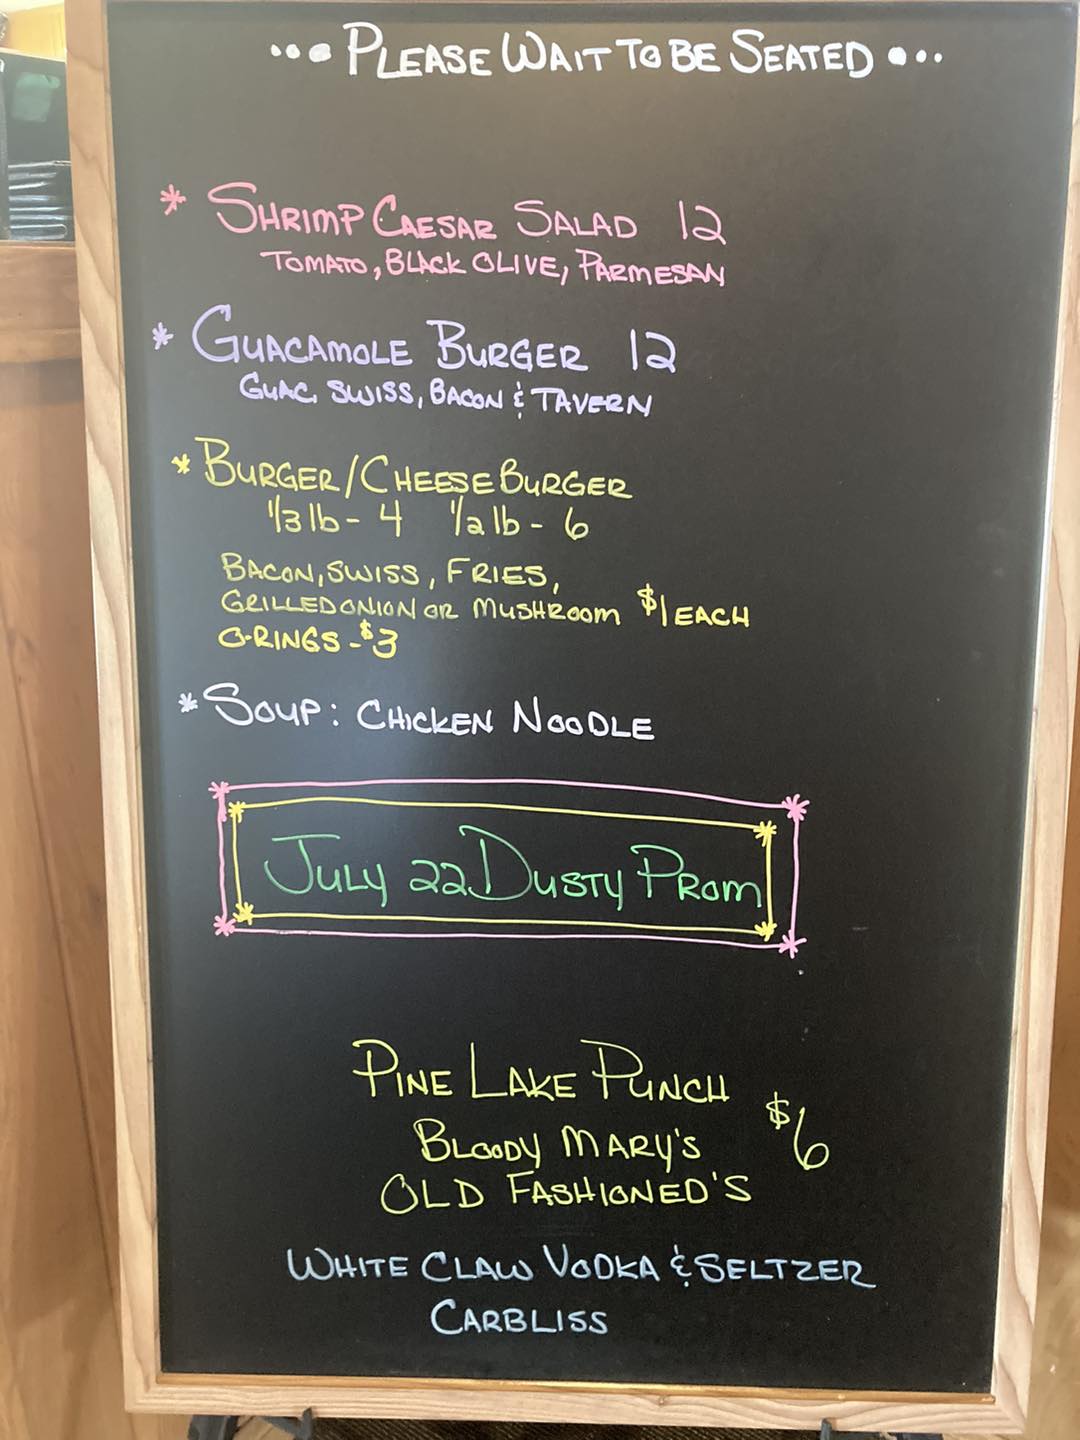 ... PLEASE WAIT TO BE SEATED ...
* SHRIMP CAESAR SALAD 12
TOMATO, BLACK OLIVE, PARMESAN
* GUACAMOLE BURGER 12
GUAC, SWISS, BACON & TAVERN
* BURGER/CHEESEBURGER
1/3 lb - 4 1/2 lb - 6
BACON, SWISS, FRIES,
GRILLED ONION OR MUSHROOM $1 EACH
O-RINGS - $3
* SOUP: CHICKEN NOODLE
JULY 22 DUSTY PROM
PINE LAKE PUNCH
BLOODY MARY'S $6
OLD FASHIONED'S
WHITE CLAW VODKA & SELTZER
CARBLISS